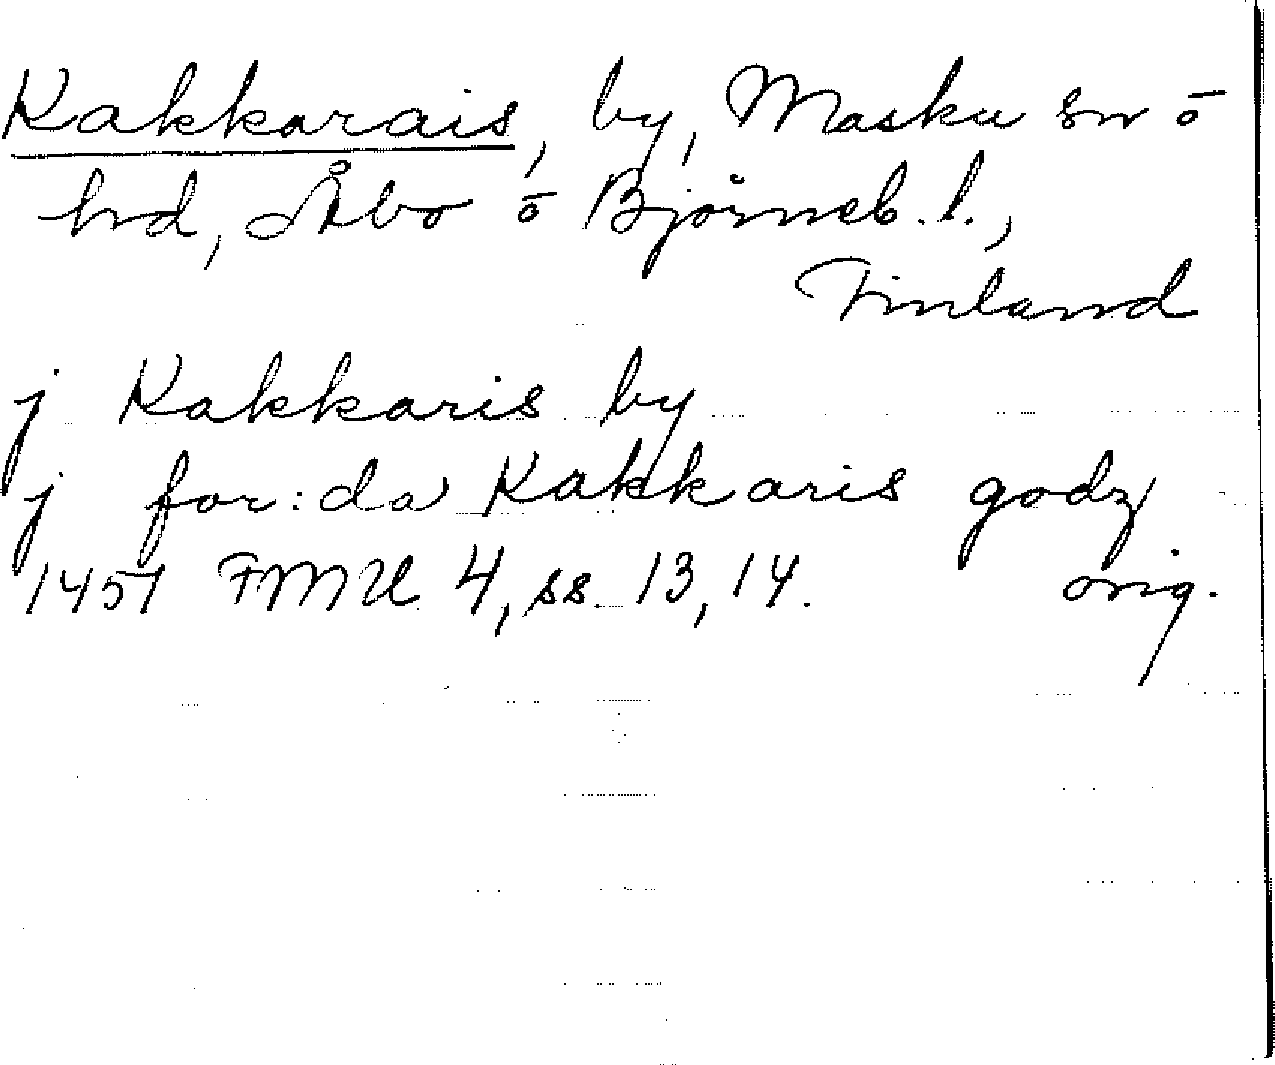 Kakkarais, by, Masku sn o
hd, Åbo o Björneb. l.,
Finland
j Kakkaris by
j for:da Kakkaris godz
1457 FMU 4, ss. 13, 14. orig.